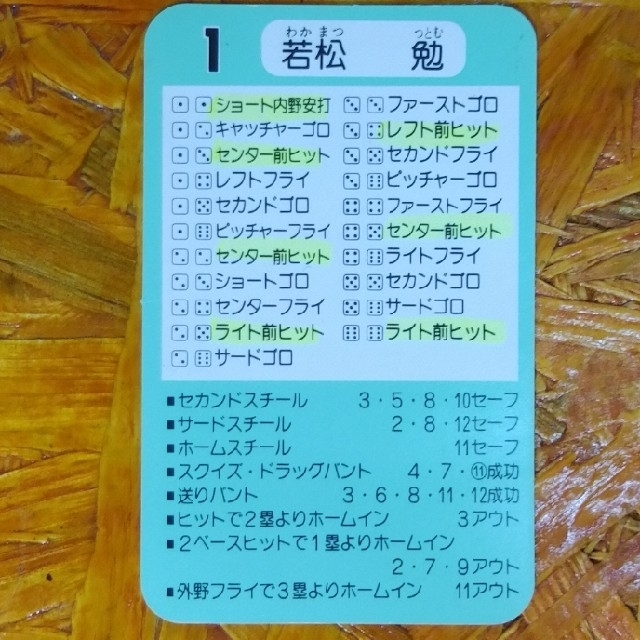 1 若松 勉
わかまつ つとむ
ショート内野安打 ファーストゴロ
キャッチャーゴロ レフト前ヒット
センター前ヒット セカンドフライ
レフトフライ ピッチャーゴロ
セカンドゴロ ファーストフライ
ピッチャーフライ センター前ヒット
センター前ヒット ライトフライ
ショートゴロ セカンドゴロ
センターフライ サードゴロ
ライト前ヒット ライト前ヒット
サードゴロ
■セカンドスチール 3・5・8・10セーフ
■サードスチール 2・8・12セーフ
■ホームスチール 11セーフ
■スクイズ・ドラッグバント 4・7・⑪成功
■送りバント 3・6・8・11・12成功
■ヒットで2塁よりホームイン 3アウト
■2ベースヒットで1塁よりホームイン
2・7・9アウト
■外野フライで3塁よりホームイン 11アウト